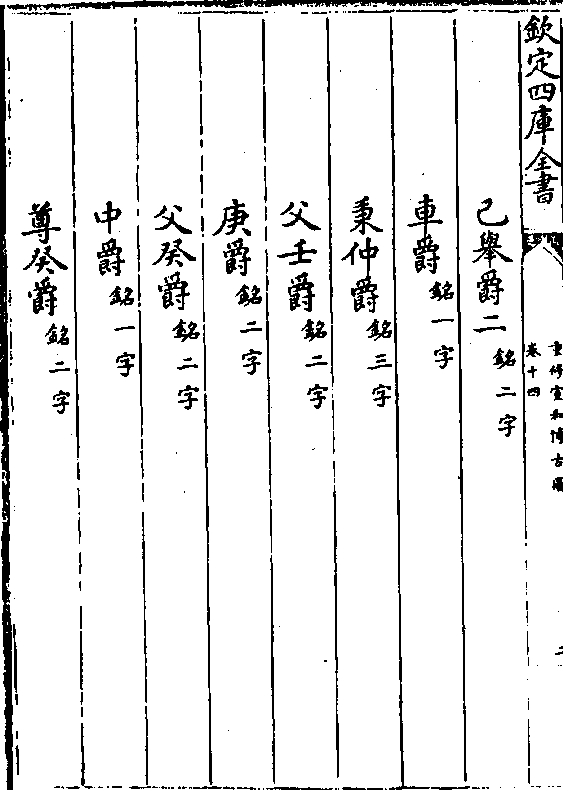 欽定四庫全書
重修宣和博古圖
卷十四
二
己舉爵二銘二字
車爵銘一字
秉仲爵銘三字
父壬爵銘二字
庚爵銘二字
父癸爵銘二字
中爵銘一字
尊癸爵銘二字